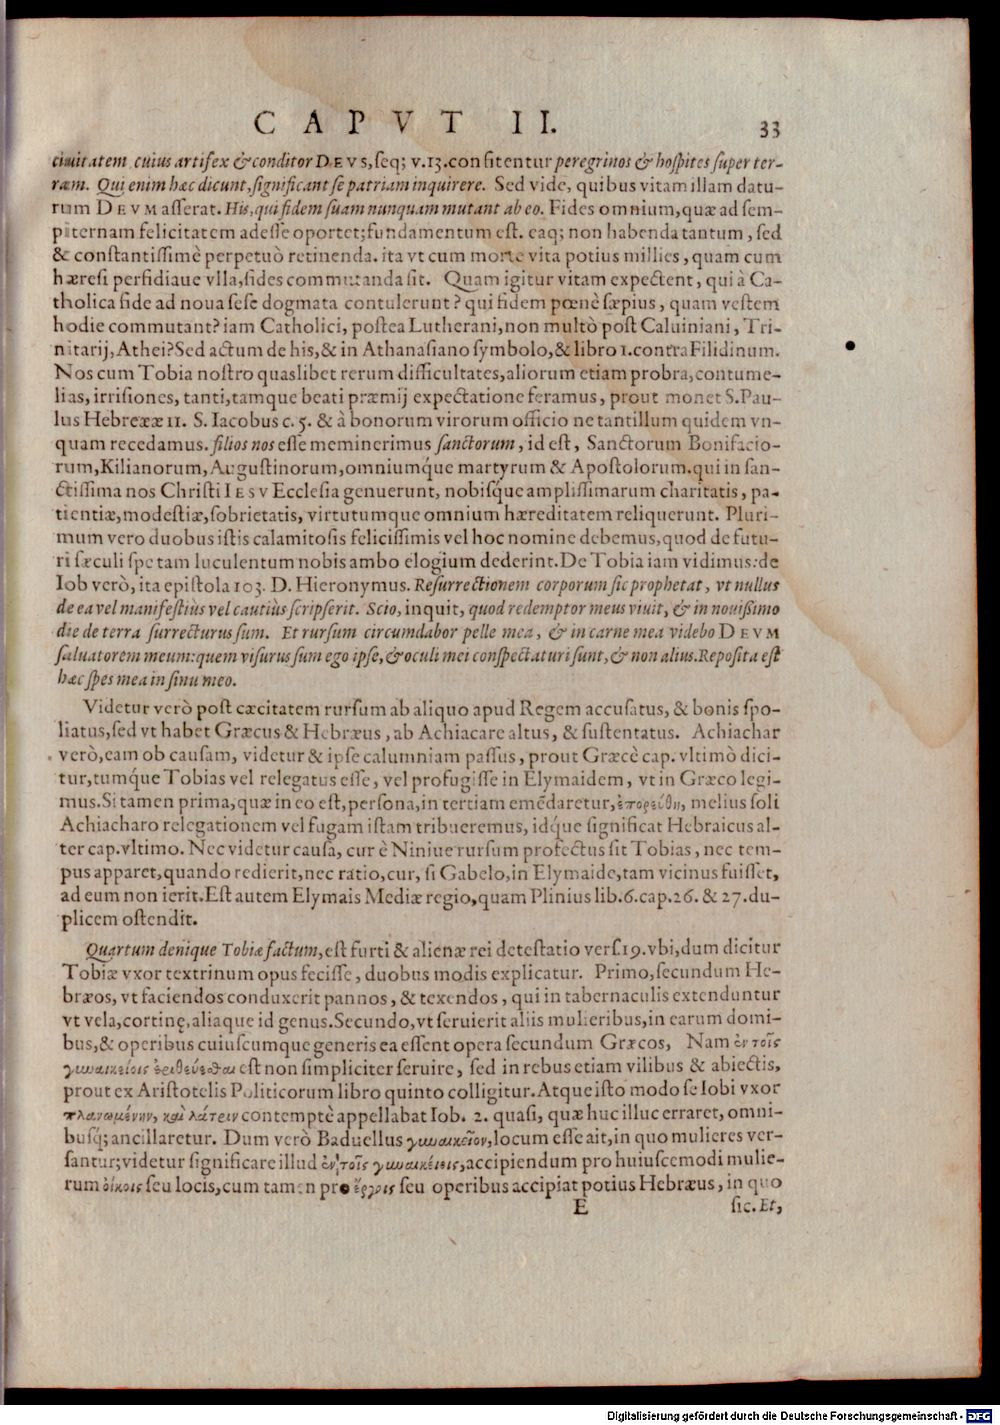 CAPVT II. 33
ciuitatem cuius artifex & conditor DEVS, seq; v.13. confitentur peregrinos & hospites super ter-
ram. Qui enim hæc dicunt, significant se patriam inquirere. Sed vide, quibus vitam illam datu-
rum DEVM asserat. His, qui fidem suam nunquam mutant ab eo. Fides omnium, quæ ad sem-
piternam felicitatem adesse oportet; fundamentum est. eaq; non habenda tantum, sed
& constantissimè perpetuò retinenda. ita vt cum morte vita potius millies, quam cum
hæresi perfidiaue vlla, fides commutanda sit. Quam igitur vitam expectent, qui à Ca-
tholica fide ad noua sese dogmata contulerunt? qui fidem pœnè sæpius, quam vestem
hodie commutant? iam Catholici, postea Lutherani, non multò post Caluiniani, Tri-
nitarij, Athei? Sed actum de his, & in Athanasiano symbolo, & libro 1. contra Filidinum.
Nos cum Tobia nostro quaslibet rerum difficultates, aliorum etiam probra, contume-
lias, irrisiones, tanti, tamque beati præmij expectatione feramus, prout monet S. Pau-
lus Hebreææ 11. S. Iacobus c. 5. & à bonorum virorum officio ne tantillum quidem vn-
quam recedamus. filios nos esse meminerimus sanctorum, id est, Sanctorum Bonifacio-
rum, Kilianorum, Augustinorum, omniumq́ue martyrum & Apostolorum. qui in san-
ctissima nos Christi IESV Ecclesia genuerunt, nobisq́ue amplissimarum charitatis, pa-
tientiæ, modestiæ, sobrietatis, virtutumque omnium hæreditatem reliquerunt. Pluri-
mum vero duobus istis calamitosis felicissimis vel hoc nomine debemus, quod de futu-
ri sæculi spe tam luculentum nobis ambo elogium dederint. De Tobia iam vidimus: de
Iob verò, ita epistola 103. D. Hieronymus. Resurrectionem corporum sic prophetat, vt nullus
de ea vel manifestius vel cautius scripserit. Scio, inquit, quod redemptor meus viuit, & in nouißimo
die de terra surrecturus sum. Et rursum circumdabor pelle mea, & in carne mea videbo DEVM
saluatorem meum: quem visurus sum ego ipse, & oculi mei conspectaturi sunt, & non alius. Reposita est
hæc spes mea in sinu meo.
Videtur verò post cæcitatem rursum ab aliquo apud Regem accusatus, & bonis spo-
liatus, sed vt habet Græcus & Hebræus, ab Achiacare altus, & sustentatus. Achiachar
verò, eam ob causam, videtur & ipse calumniam passus, prout Græcè cap. vltimò dici-
tur, tumq́ue Tobias vel relegatus esse, vel profugisse in Elymaidem, vt in Græco legi-
mus. Si tamen prima, quæ in eo est, persona, in tertiam emẽdaretur, ἐπορεύθη, melius soli
Achiacharo relegationem vel fugam istam tribueremus, idq́ue significat Hebraicus al-
ter cap. vltimo. Nec videtur causa, cur è Niniue rursum profectus sit Tobias, nec tem-
pus apparet, quando redierit, nec ratio, cur, si Gabelo, in Elymaide, tam vicinus fuisset,
ad eum non ierit. Est autem Elymais Mediæ regio, quam Plinius lib. 6. cap. 26. & 27. du-
plicem ostendit.
Quartum denique Tobiæ factum, est furti & alienæ rei detestatio vers. 19. vbi, dum dicitur
Tobiæ vxor textrinum opus fecisse, duobus modis explicatur. Primo, secundum He-
bræos, vt faciendos conduxerit pannos, & texendos, qui in tabernaculis extenduntur
vt vela, cortinę, aliaque id genus. Secundo, vt seruierit aliis mulieribus, in earum domi-
bus, & operibus cuiuscumque generis ea essent opera secundum Græcos, Nam ἐν τοῖς
γυναικείοις ἐριθεύεσθαι est non simpliciter seruire, sed in rebus etiam vilibus & abiectis,
prout ex Aristotelis Politicorum libro quinto colligitur. Atque isto modo se Iobi vxor
πλανωμένην, καὶ λάτριν contemptè appellabat Iob. 2. quasi, quæ huc illuc erraret, omni-
busq́; ancillaretur. Dum verò Baduellus γυναικεῖον, locum esse ait, in quo mulieres ver-
santur; videtur significare illud ἐν τοῖς γυναικείοις, accipiendum pro huiuscemodi mulie-
rum οἴκοις seu locis, cum tamen pro ἔργοις seu operibus accipiat potius Hebræus, in quo
E sic. Et,
Digitalisierung gefördert durch die Deutsche Forschungsgemeinschaft - DFG